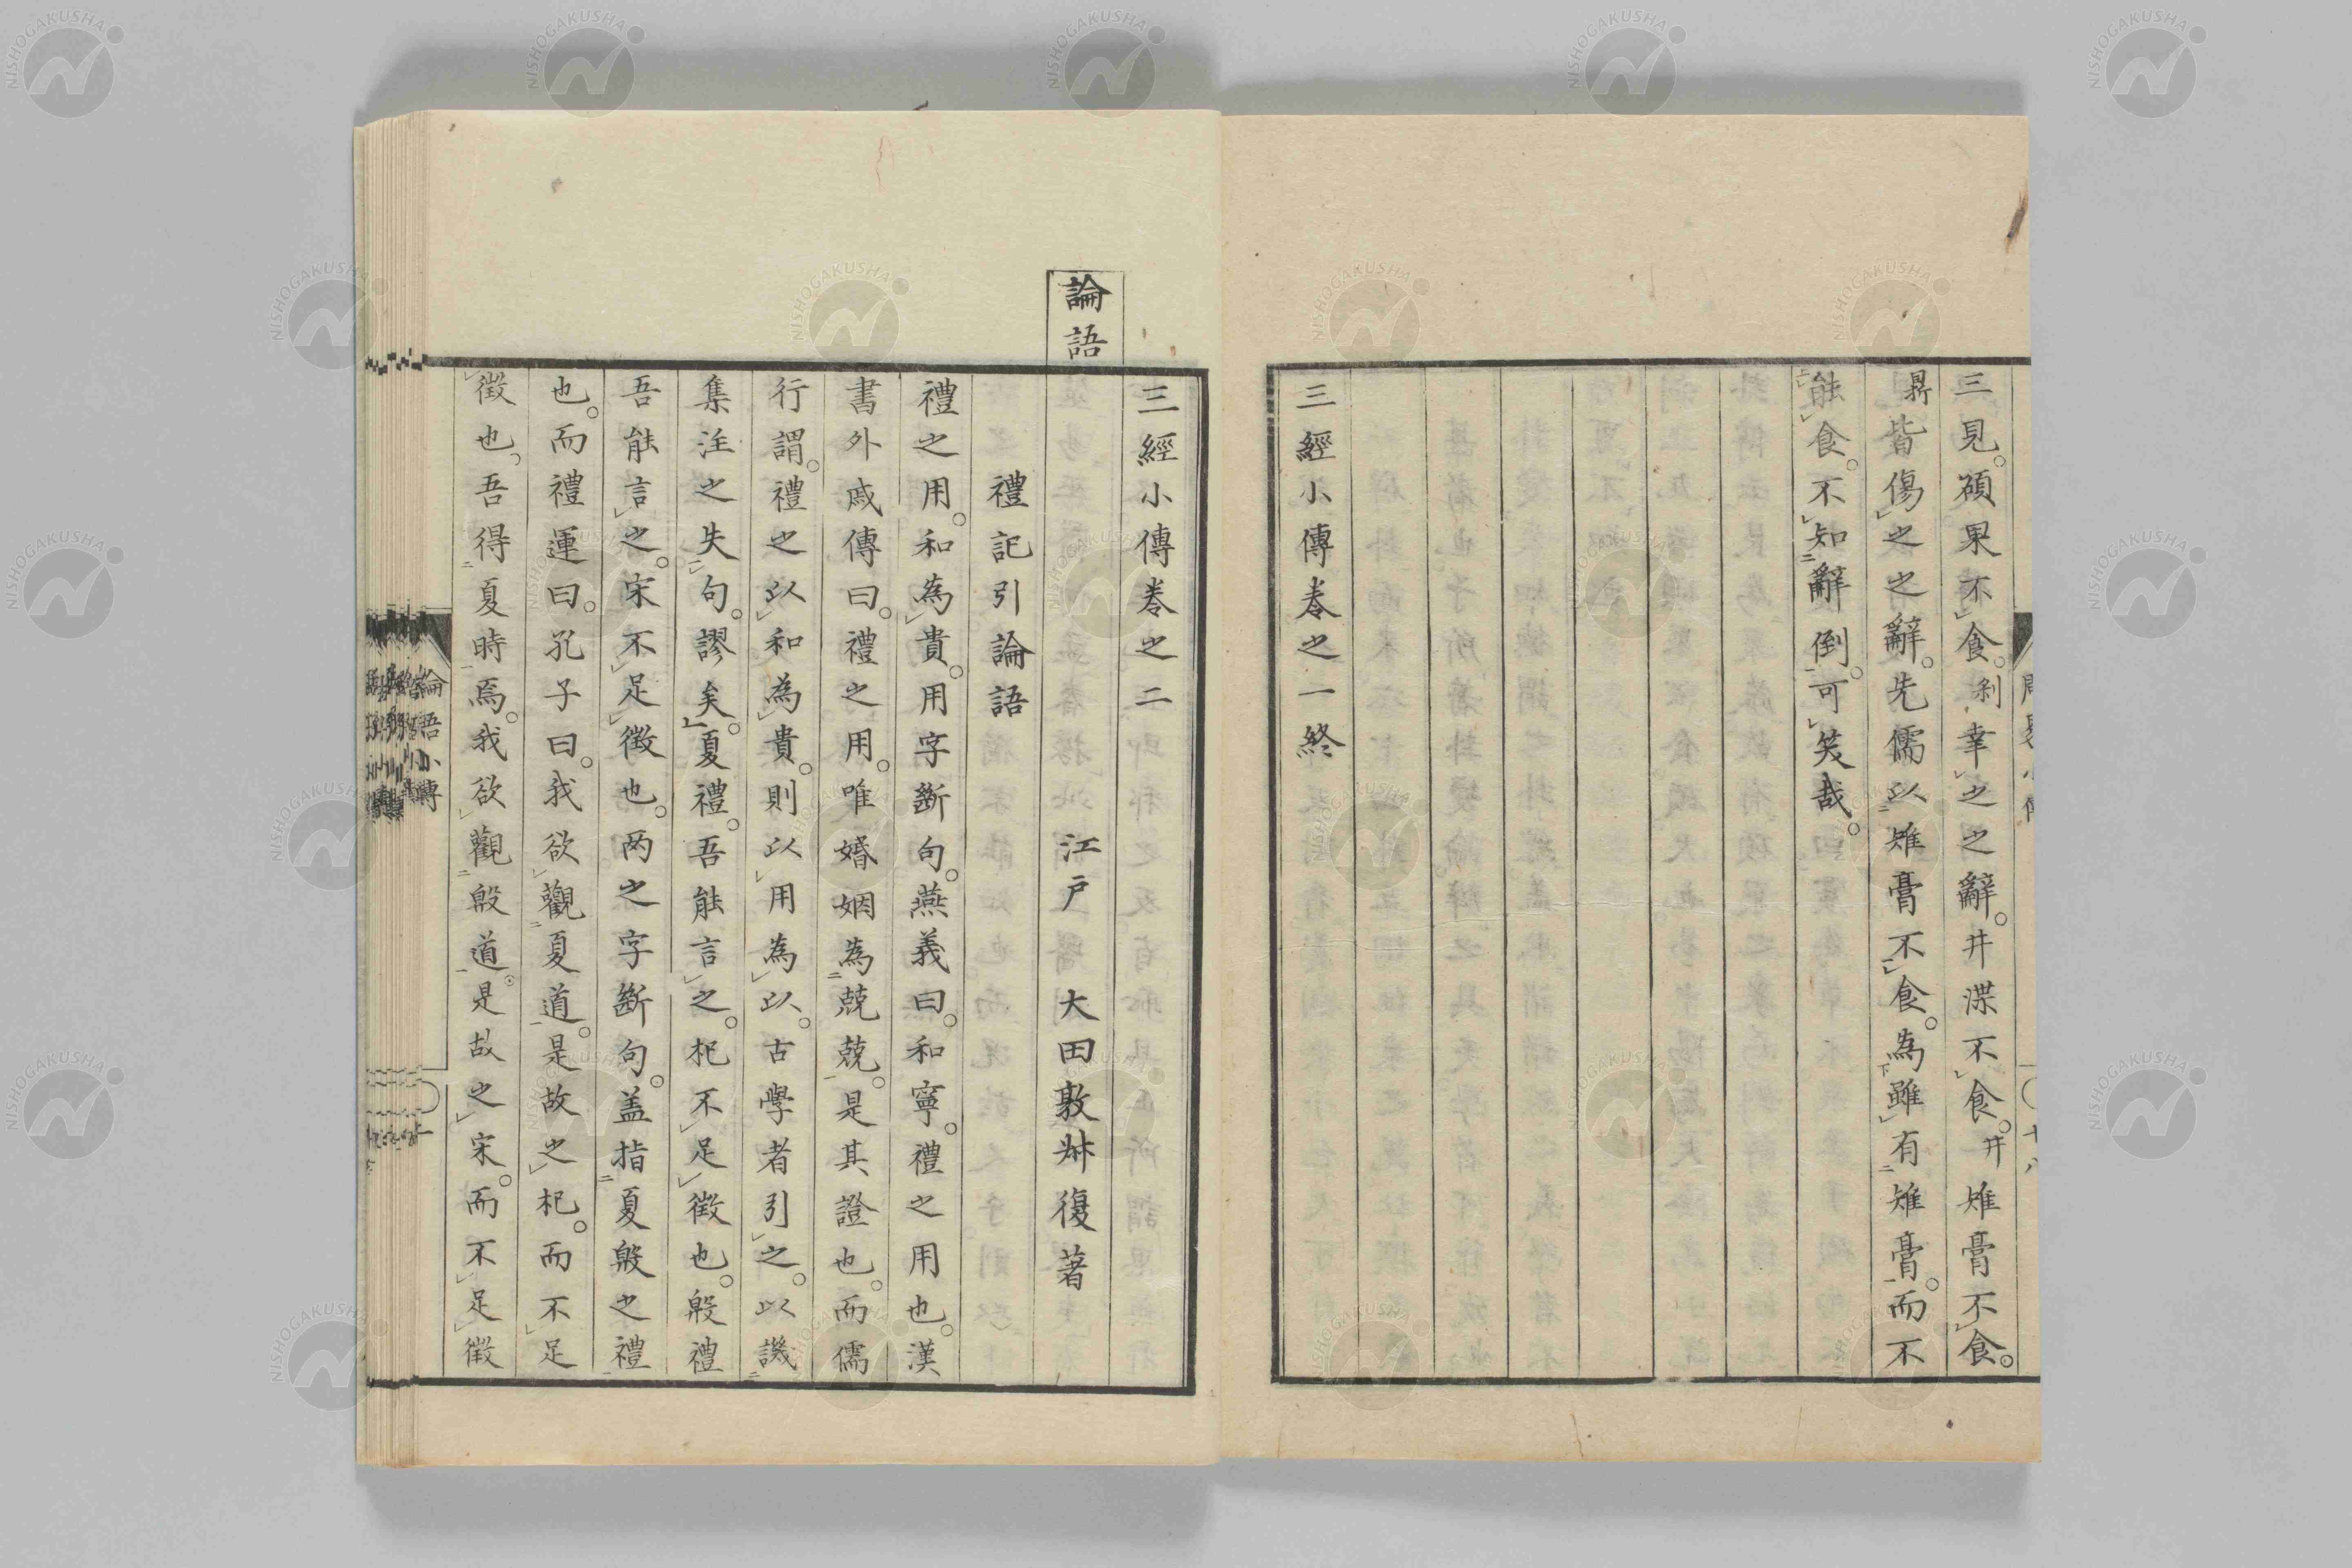 三見。碩果不食。剥幸之之辭。井渫不食。井雉膏不食。
鼎皆傷之之辭。先儒以雉膏不食。為雖有雉膏。而不
能食。不知辭倒。可笑哉。
三經小傳卷之一終
論語
三經小傳卷之二
江戸 大田敦 復著
禮記引論語
禮之用。和為貴。用字斷句。燕義曰。和寧。禮之用也。漢
書外戚傳曰。禮之用。唯婚姻為兢兢。是其證也。而儒
行謂。禮之以和為貴。則以用為以。古學者引之。以譏
集注之失句。謬矣。夏禮。吾能言之。杞不足徵也。殷禮
吾能言之。宋不足徵也。两之字斷句。盖指夏殷之禮
也。而禮運曰。孔子曰。我欲觀夏道。是故之杞。而不足
徵也。吾得夏時焉。我欲觀殷道。是故之宋。而不足徵
論語小傳
NISHOGAKUSHA